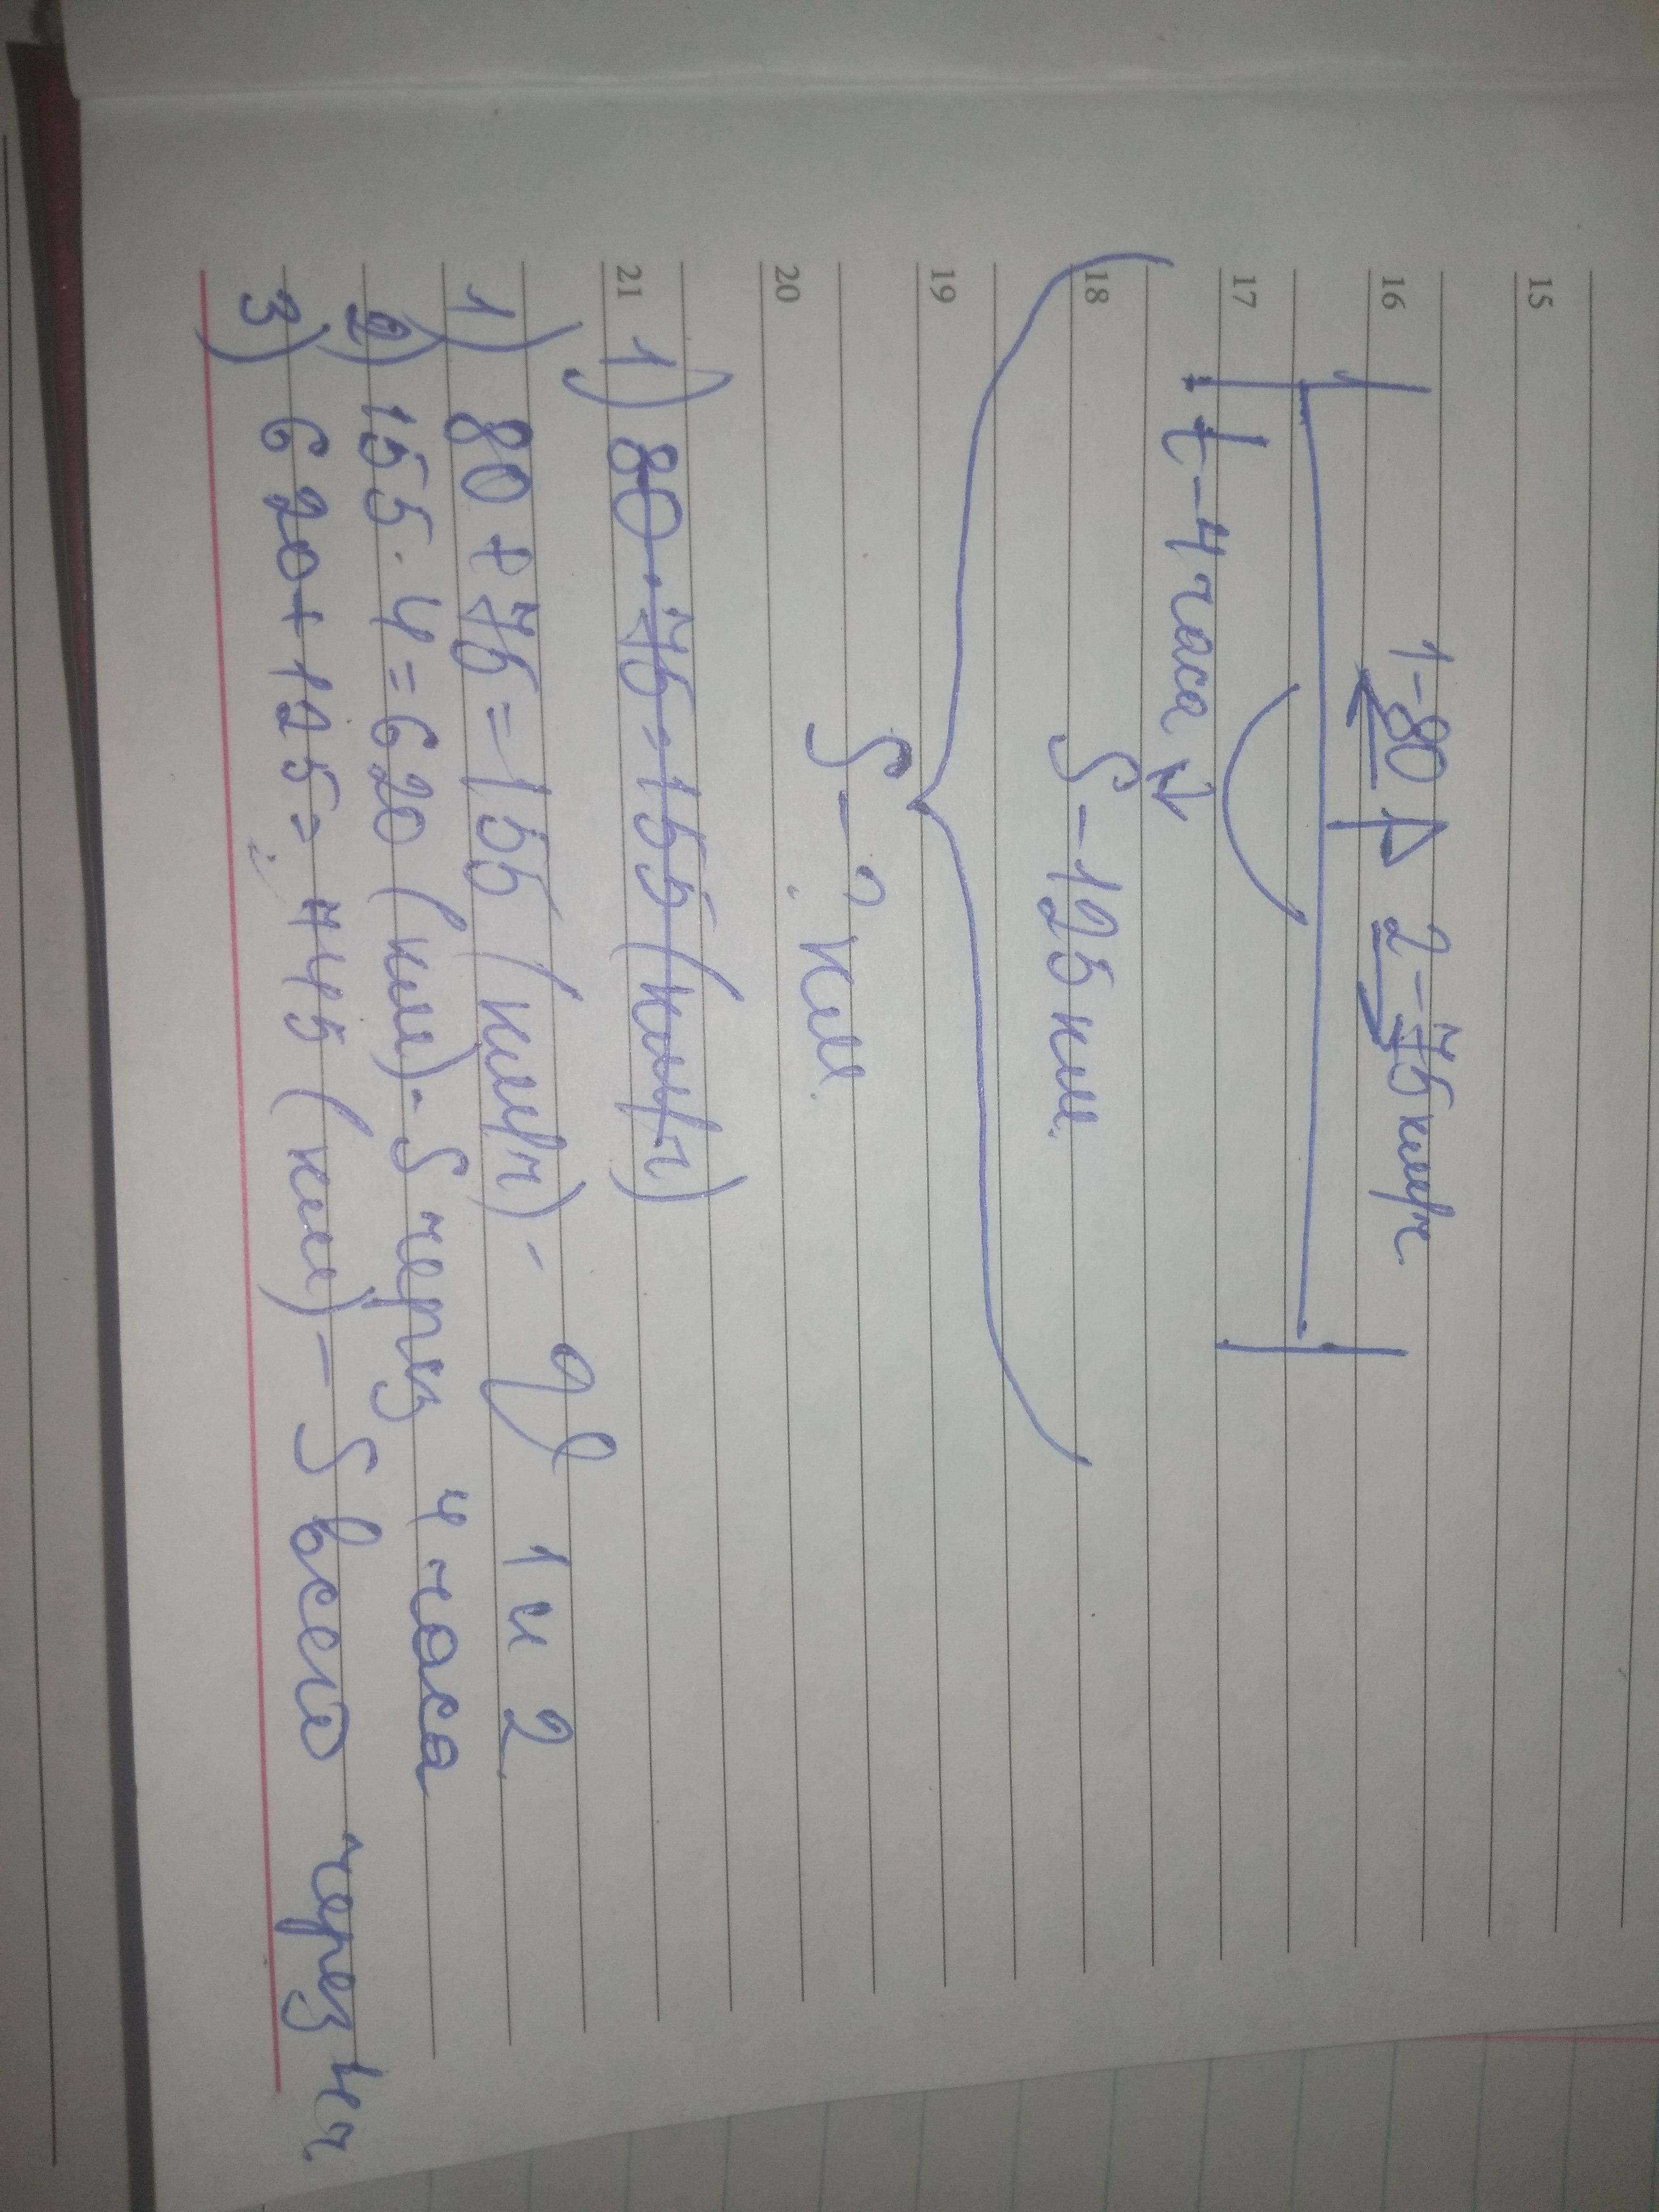 15
16 1-80 2-75 км/ч
17
t-4 часа
18 S-125 км.
19
20 S-? км.
21 1) 80·75=155(км/ч)
1) 80+75=155 (км/ч)- 1 и 2.
2) 155·4=620 (км)-S через 4 часа
3) 620+125=745 (км)-S всего через 4ч.